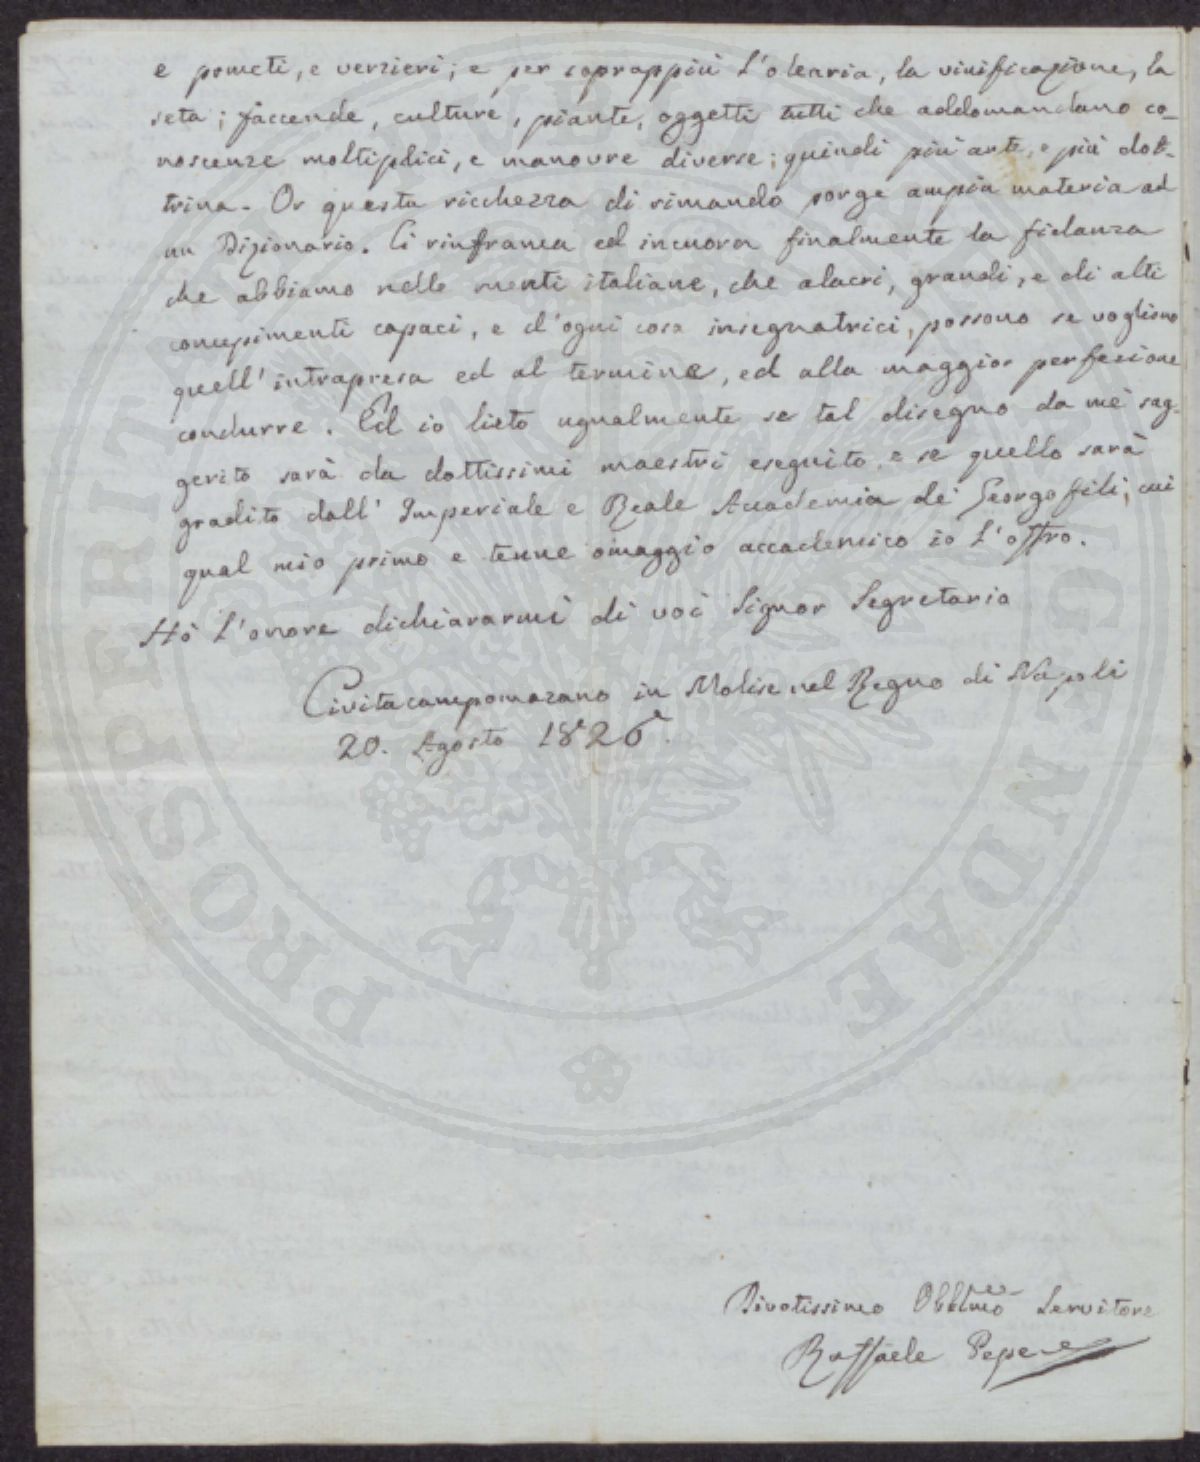 e pometi, e verzieri; e per soprappiù l'olearia, la vinificazione, la
seta; faccende, culture, piante, oggetti tutti che addomandano co_
noscenze moltiplici, e manovre diverse; quindi più arte, e più dot_
trina. Or questa ricchezza di rimando porge ampia materia ad
un Dizionario. Ci rinfranca ed incuora finalmente la fidanza
che abbiamo nelle menti italiane, che alacri, grandi, e di alti
concepimenti capaci, e d'ogni cosa insegnatrici, possono se vogliono
quell'intrapresa ed al termine, ed alla maggior perfezione
condurre. Ed io lieto ugualmente se tal disegno da me sug_
gerito sarà da dottissimi maestri eseguito, e se quello sarà
gradito dall'Imperiale e Reale Accademia de' Georgofili, cui
qual mio primo e tenue omaggio accademico io l'offro.
Hò l'onore dichiararmi di voi Signor Segretario
Civitacampomarano in Molise nel Regno di Napoli
20. Agosto 1826
Divotissimo Obblmo Servitore
Raffaele Pepe
PROSPERITATI
AUGENDAE